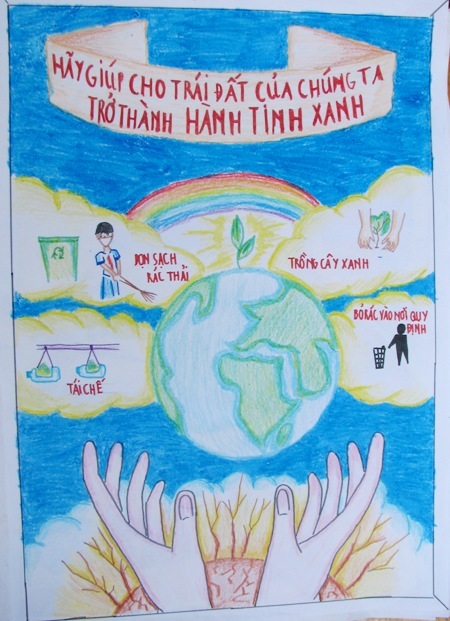 HÃY GIÚP CHO TRÁI ĐẤT CỦA CHÚNG TA
TRỞ THÀNH HÀNH TINH XANH
DỌN SẠCH
RÁC THẢI
TRỒNG CÂY XANH
TÁI CHẾ
BỎ RÁC VÀO NƠI QUY
ĐỊNH